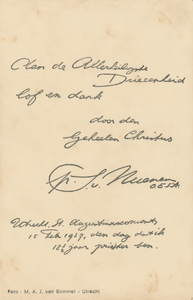 Aan de Allerheiligste
Drieeenheid
lof en dank
door den
Geheelen Christus
Fr. S. v. Nuenen
O.E.S.A.
Utrecht, St. Augustinusconvent
15 Feb. 1939, den dag dat ik
12½ jaar priester ben.
Foto - M. A. J. van Bommel - Utrecht